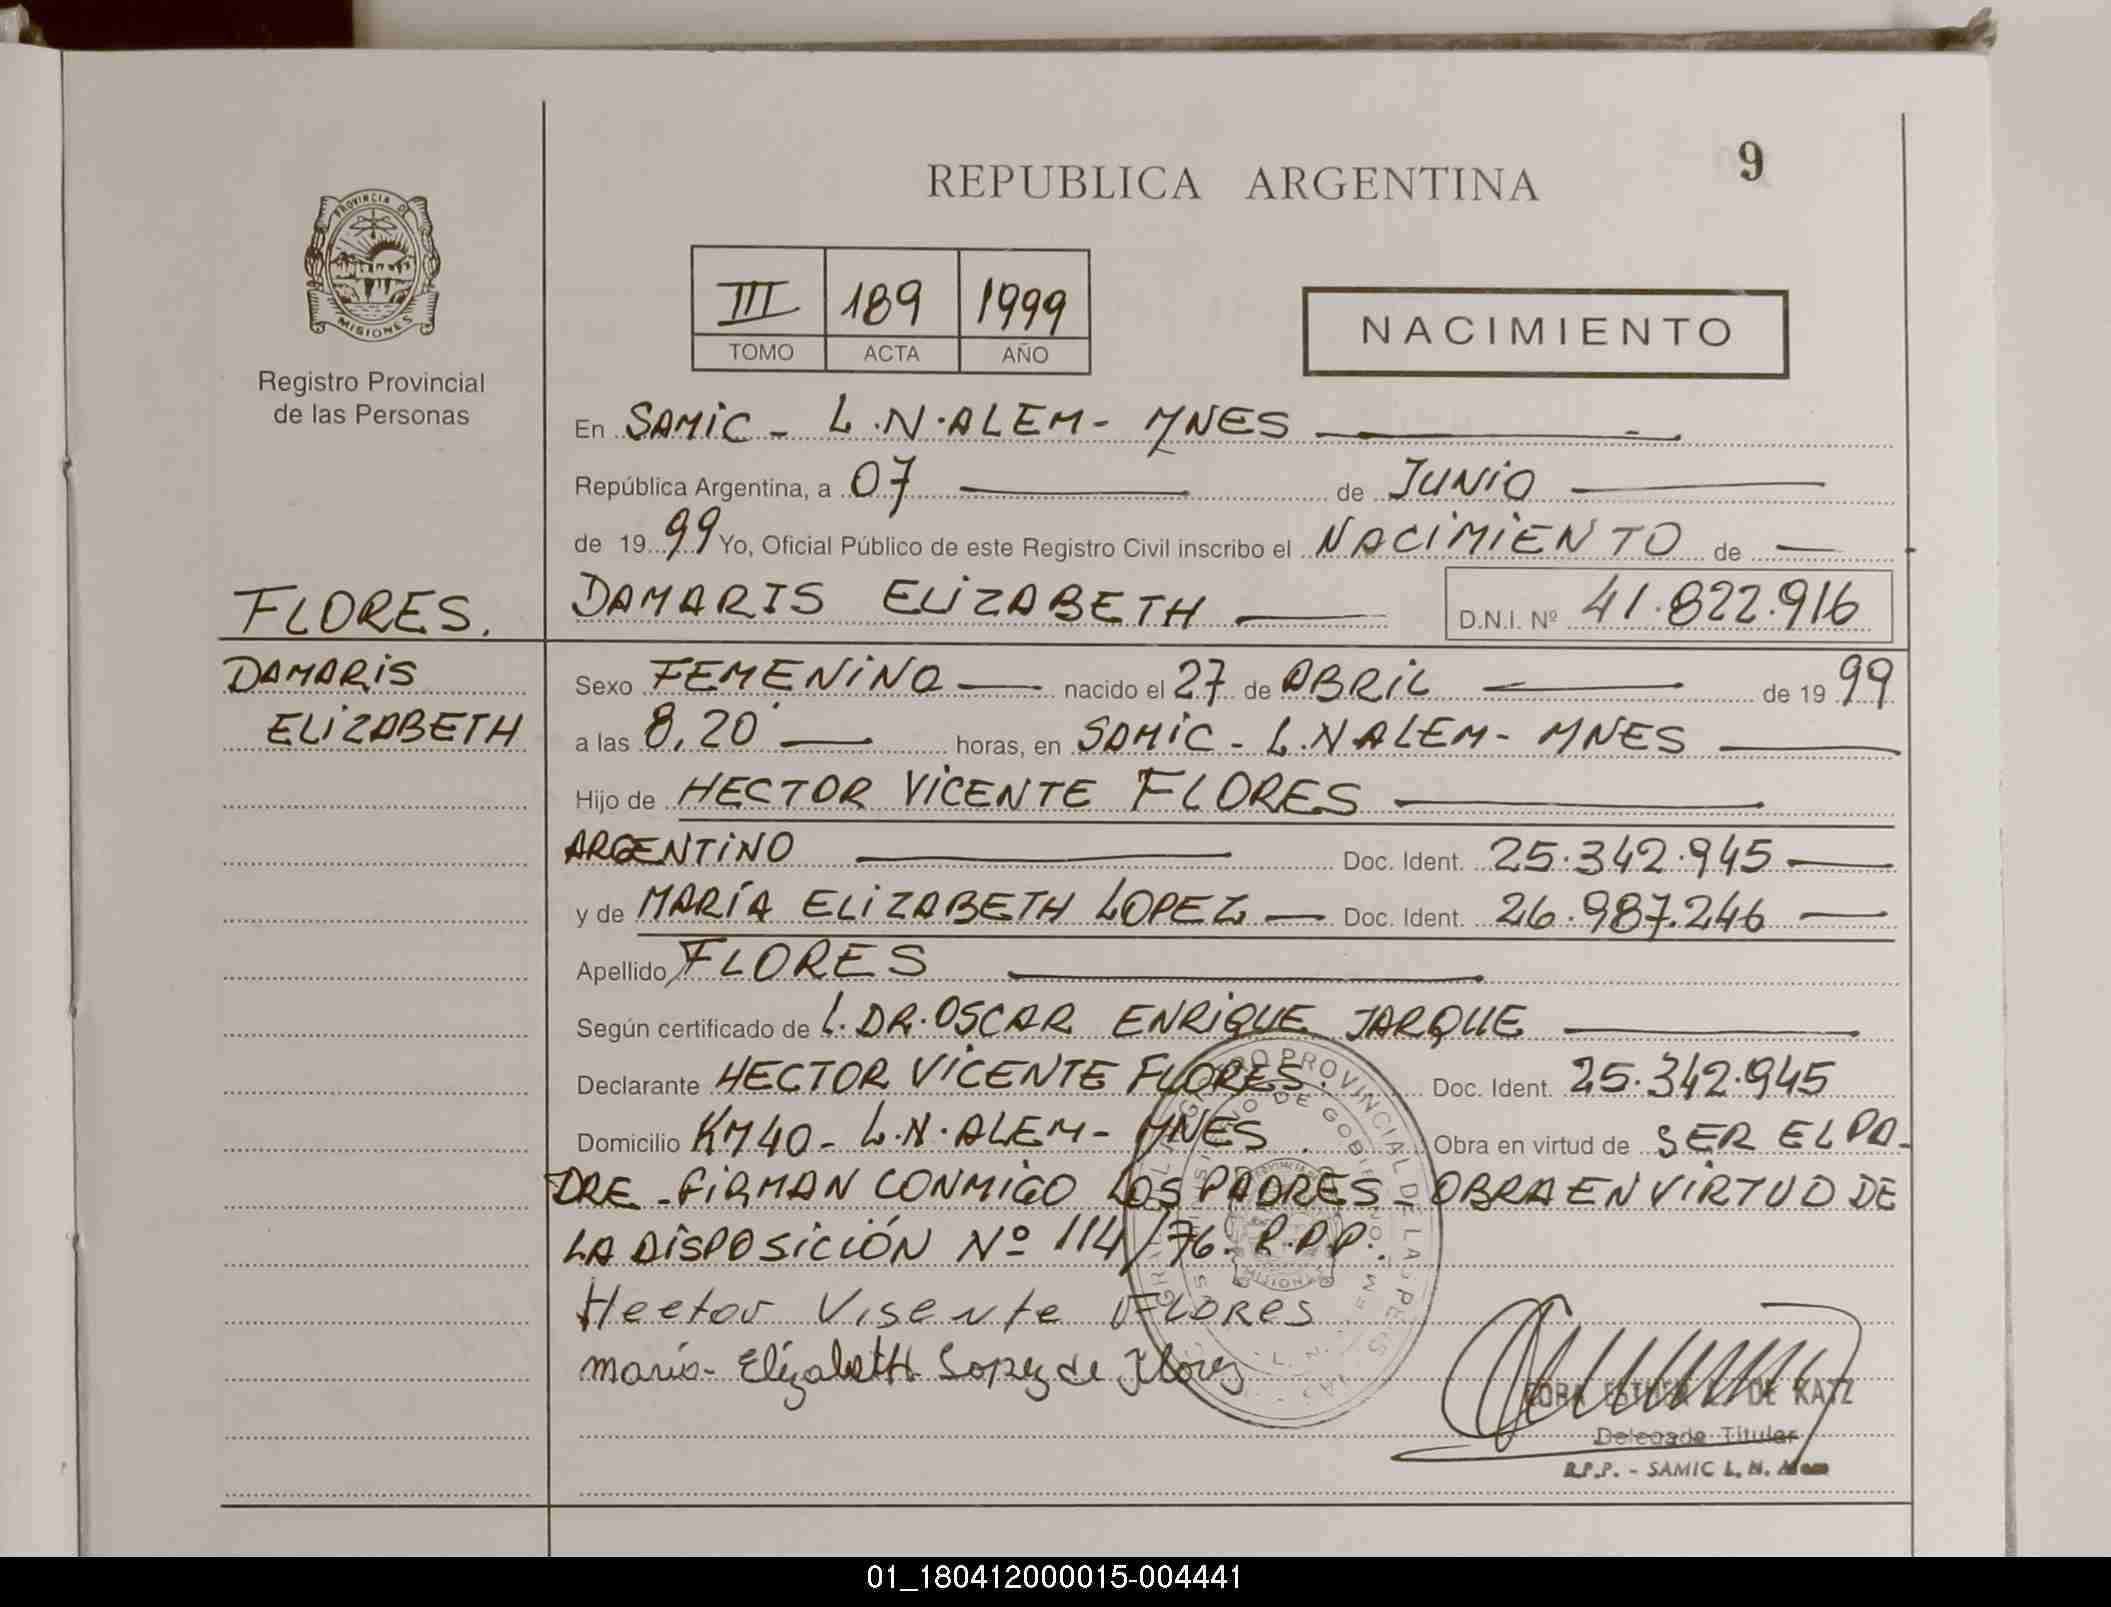 9
REPUBLICA ARGENTINA
PROVINCIA DE
MISIONES
Registro Provincial
de las Personas
III 189 1999
TOMO ACTA AÑO
NACIMIENTO
En SAMIC - L.N.ALEM - MNES
República Argentina, a 07 de JUNIO
de 1999 Yo, Oficial Público de este Registro Civil inscribo el NACIMIENTO de
FLORES.
DAMARIS ELIZABETH D.N.I. Nº 41.822.916
DAMARIS
ELIZABETH
Sexo FEMENINO nacido el 27 de ABRIL de 1999
a las 8,20 horas, en SAMIC - L.N ALEM - MNES
Hijo de HECTOR VICENTE FLORES
ARGENTINO Doc. Ident. 25.342.945
y de MARÍA ELIZABETH LOPEZ Doc. Ident. 26.987.246
Apellido FLORES
Según certificado de L. DR. OSCAR ENRIQUE JARQUE
Declarante HECTOR VICENTE FLORES. Doc. Ident. 25.342.945
Domicilio KM 40 - L.N.ALEM - MNES Obra en virtud de SER EL PA-
DRE - FIRMAN CONMIGO LOS PADRES - OBRA EN VIRTUD DE
LA DISPOSICIÓN Nº 114/76. R.P.P.
Hector Visente FLORES
maria Elizabeth Lopez de Flores
ESTHER L. DE KATZ
Delegada Titular
R.P.P. - SAMIC L. N. Alem
01_180412000015-004441